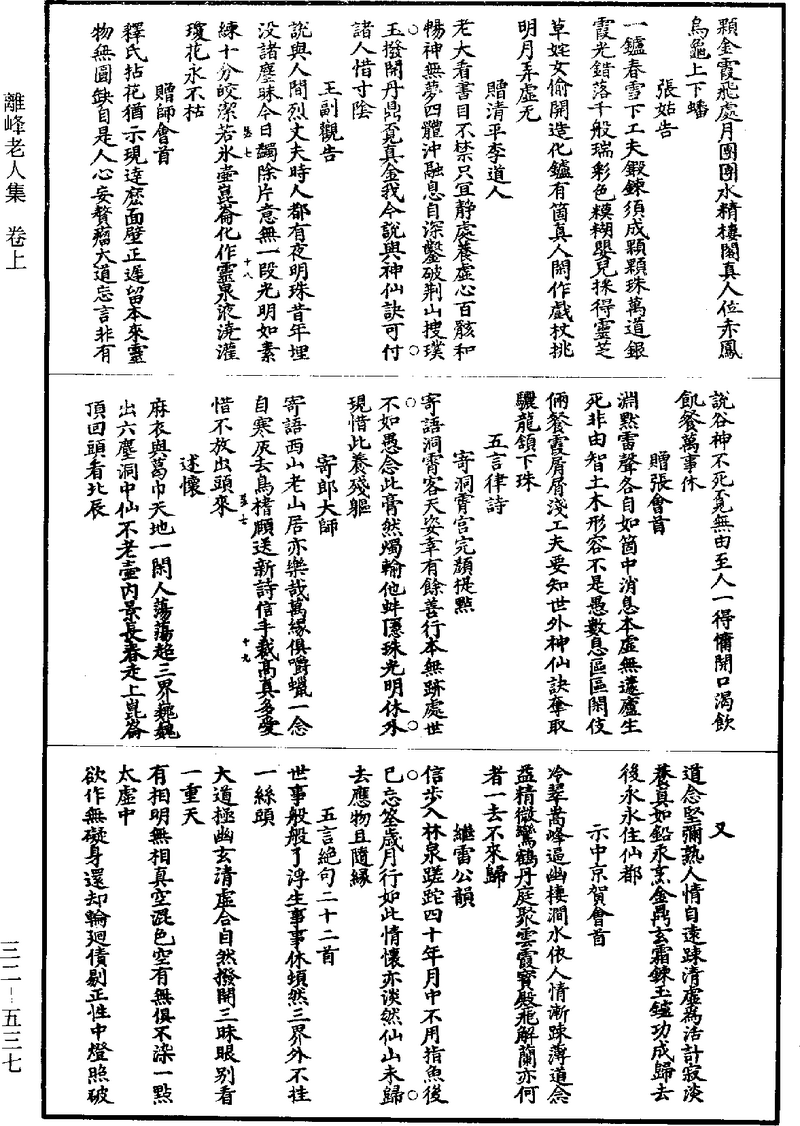 顆金霞飛處月團團水精樓閣真人位赤鳳
烏龜上下蟠
張姑告
一鑪春雪下工夫鍛鍊須成顆顆珠萬道銀
霞光錯落千般瑞彩色糢糊嬰兒採得靈芝
草姹女偷開造化鑪有箇真人閑作戲杖挑
明月弄虛无
贈清平李道人
老大看書目不禁只宜靜處養虛心百骸和
暢神無夢四體沖融息自深鑿破荆山搜璞
玉撥開丹鼎覓真金我今說與神仙訣可付
諸人惜寸陰
王副觀告
說與人間烈丈夫時人都有夜明珠昔年埋
没諸塵昧今日蠲除片意無一段光明如素
練十分皎潔若氷壺崑崙化作靈泉液澆灌
瓊花永不枯
贈師會首
釋氏拈花猶示現達麽面壁正遲留本來靈
物無圓缺自是人心妄贅瘤大道忘言非有
說谷神不死覓無由至人一得慵開口渴飲
飢餐萬事休
贈張會首
淵默雷聲各自如箇中消息本虛無蘧廬生
死非由智土木形容不是愚數息區區閑伎
倆餐霞屑屑淺工夫要知世外神仙訣奪取
驪龍頷下珠
五言律詩
寄洞霄宫完顏提點
寄語洞霄客天姿幸有餘善行本無跡處世
不如愚念此膏然燭輸他蚌隱珠光明休外
現惜此養殘軀
寄郎大師
寄語西山老山居亦樂哉萬緣俱嚼蠟一念
自寒灰去鳥楮頤送新詩信手裁高真多愛
惜不放出頭來
述懷
麻衣與葛巾天地一閑人蕩蕩超三界巍巍
出六塵洞中仙不老壺内景長春走上崑崙
頂回頭看北辰
又
道念堅彌熟人情自遠踈清虛爲活計寂淡
養真如鉛汞烹金鼎玄霜鍊玉鑪功成歸去
後永永住仙都
示中京賀會首
冷翠嵩峰逼幽棲澗水依人情漸踈薄道念
益精微鸞鶴丹庭聚雲霞寶殿飛解蘭亦何
者一去不來歸
繼雷公韻
信步入林泉蹉跎四十年月中不用指魚後
已忘筌歲月行如此情懷亦淡然仙山未歸
去應物且隨緣
五言絕句二十二首
世事般般了浮生事事休頽然三界外不挂
一絲頭
大道極幽玄清虛合自然撥開三昧眼别看
一重天
有相明無相真空混色空有無俱不染一點
太虛中
欲作無礙身還却輪廻債剔正性中燈照破
離峰老人集　卷上
三二－五三七